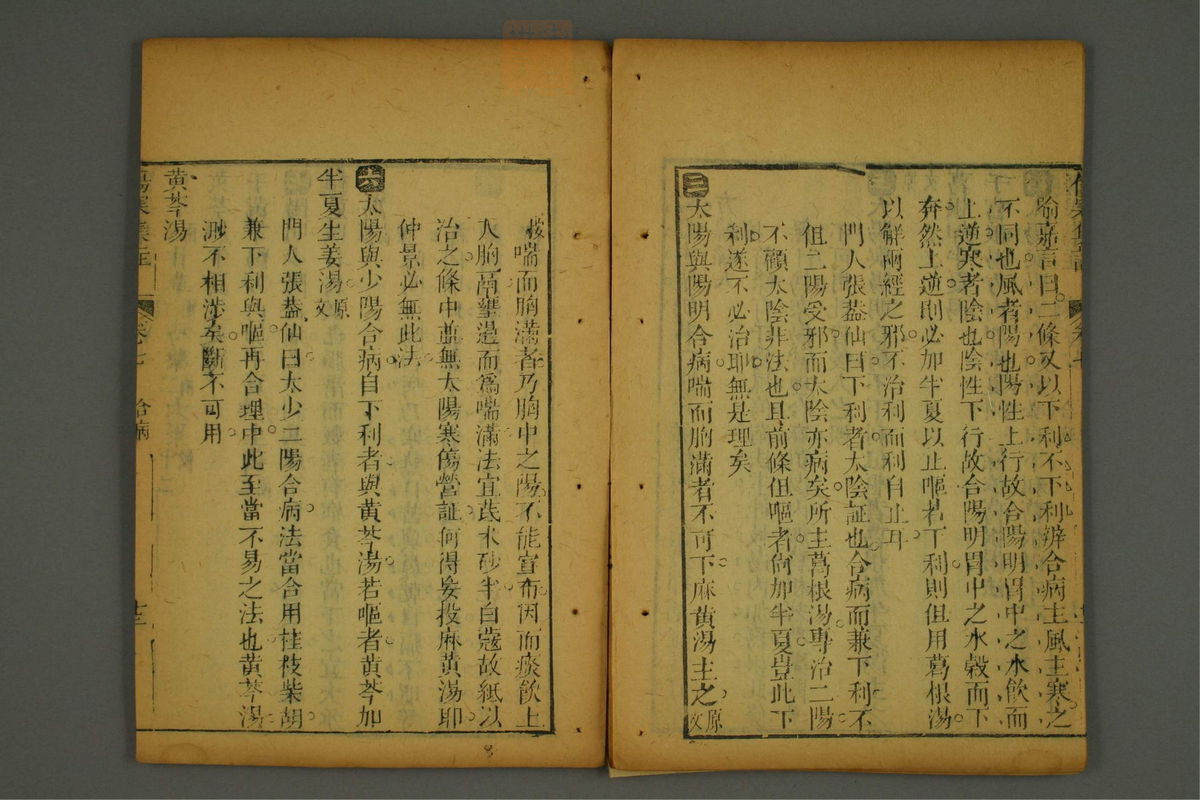 喻嘉言曰二條又以下利不下利辨合病主風主寒之
不同也風者陽也陽性上行故合陽明胃中之水飲而
上逆寒者陰也陰性下行故合陽明胃中之水穀而下
奔然上逆則必加半夏以止嘔若下利則但用葛根湯
以解兩經之邪不治利而利自止耳
門人張蓋仙曰下利者太陰証也合病而兼下利不
但二陽受邪而太陰亦病矣所主葛根湯專治二陽
不顧太陰非法也且前條但嘔者尚加半夏豈此下
利遂不必治耶無是理矣
三 太陽與陽明合病喘而胸滿者不可下麻黃湯主之原文
按喘而胸滿者乃胸中之陽不能宣布因而痰飲上
入胸膈壅遏而為喘滿法宜茋朮砂半白蔻故紙以
治之條中並無太陽寒傷營証何得妄投麻黃湯耶
仲景必無此法
六 太陽與少陽合病自下利者與黃芩湯若嘔者黃芩加
半夏生姜湯原文
門人張蓋仙曰太少二陽合病法當合用桂枝柴胡
兼下利與嘔再合理中此至當不易之法也黃芩湯
渺不相涉矣斷不可用
黃芩湯
傷寒集註 卷七 合病